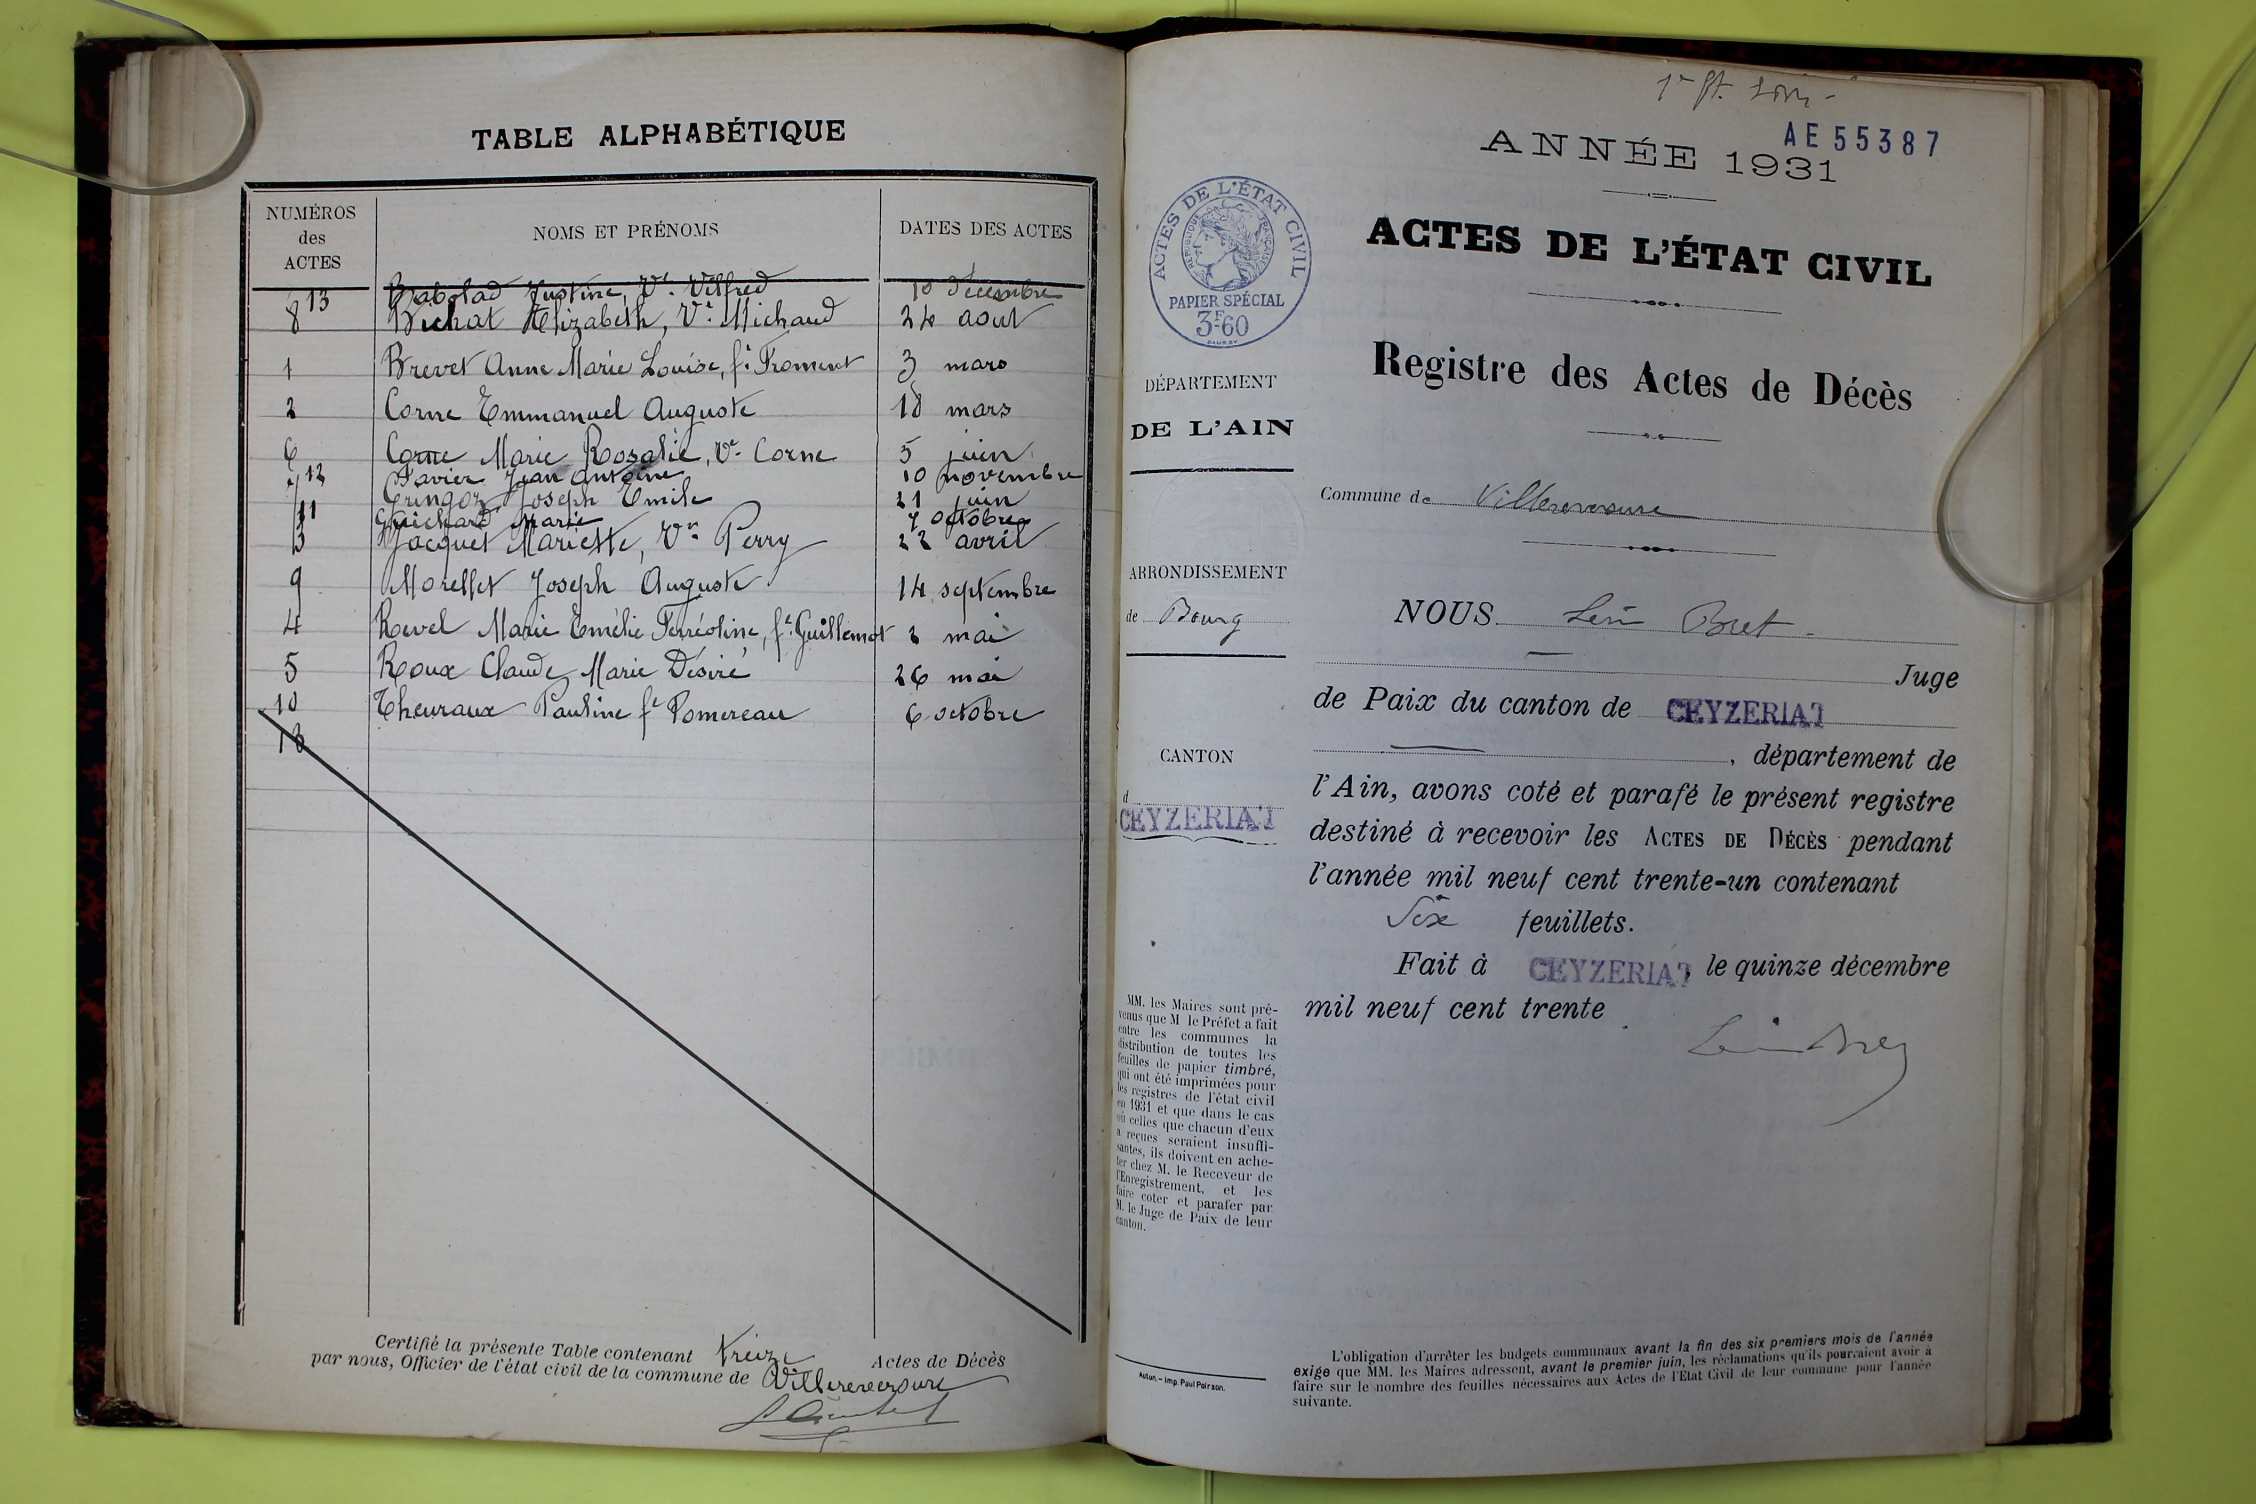 TABLE ALPHABÉTIQUE
NUMÉROS des ACTES
NOMS ET PRÉNOMS
DATES DES ACTES
13 Babolad Justine, Ve Vilfred 10 décembre
8 Bichat Elizabeth, Ve Michaud 24 aout
1 Brevet Anne Marie Louise, fe Froment 3 mars
2 Corne Emmanuel Auguste 18 mars
6 Corne Marie Rosalie, Ve Corne 5 juin
12 Favier Jean Antoine 10 novembre
7 Gringoz Joseph Emile 21 juin
11 Guichard Marie 7 octobre
3 Jacquet Mariette, Ve Perry 22 avril
9 Morellet Joseph Auguste 14 septembre
4 Revel Marie Emélie Ferréoline, fe Guillemot 2 mai
5 Roux Claude Marie Désiré 26 mai
10 Theuraux Pauline fe Pomereau 6 octobre
Certifié la présente Table contenant treize Actes de Décès
par nous, Officier de l'état civil de la commune de Villereversure
AE55387
ANNÉE 1931
ACTES DE L'ÉTAT CIVIL
Registre des Actes de Décès
ACTES DE L'ÉTAT CIVIL
RÉPUBLIQUE FRANÇAISE
PAPIER SPÉCIAL
3F60
DÉPARTEMENT
DE L'AIN
Commune de Villereversure
ARRONDISSEMENT
de Bourg
CANTON
d
CEYZERIAT
NOUS Léon Bret
Juge
de Paix du canton de CEYZERIAT
, département de
l'Ain, avons coté et parafé le présent registre
destiné à recevoir les ACTES DE DÉCÈS pendant
l'année mil neuf cent trente-un contenant
Six feuillets.
Fait à CEYZERIAT, le quinze décembre
mil neuf cent trente
MM. les Maires sont pré-
venus que M le Préfet a fait
entre les communes la
distribution de toutes les
feuilles de papier timbré,
qui ont été imprimées pour
les registres de l'état civil
en 1931 et que dans le cas
où celles que chacun d'eux
a reçues seraient insuffi-
santes, ils doivent en ache-
ter chez M. le Receveur de
l'Enregistrement, et les
faire coter et parafer par
M. le Juge de Paix de leur
canton.
Autun. – Imp. Paul Poirson.
L'obligation d'arrêter les budgets communaux avant la fin des six premiers mois de l'année
exige que MM. les Maires adressent, avant le premier juin, les réclamations qu'ils pourraient avoir à
faire sur le nombre des feuilles nécessaires aux Actes de l'Etat Civil de leur commune pour l'année
suivante.